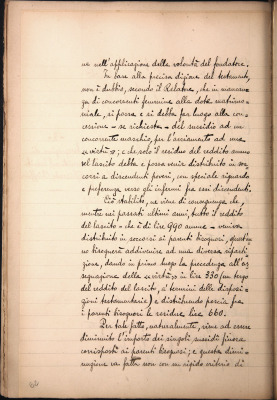 ne nell'applicazione della volontà del fondatore.
In base alla precisa dizione del testamento,
non è dubbio, secondo il Relatore, che in mancan-
za di concorrenti femmine alla dote matrimo-
niale, si possa e si debba far luogo alla con-
cessione - se richiesta - del sussidio ad un
concorrente maschio, per l'avviamento ad una
"virtù"; e che solo il residuo del reddito annuo
del lascito debba e possa venir distribuito in soc-
corsi a discendenti poveri, con speciale riguardo
e preferenza verso gli infermi fra essi discendenti.
Ciò stabilito, ne viene di conseguenza che,
mentre nei passati ultimi anni, tutto il reddito
del lascito - che è di lire 990 annue - veniva
distribuito in soccorsi ai parenti bisognosi, quest'an-
no bisognerà addivenire ad una diversa riparti-
zione, dando in primo luogo la precedenza all'as-
segnazione della "virtù" in lire 330 (un terzo
del reddito del lascito, ai termini delle disposi-
zioni testamentarie) e distribuendo poscia fra
i parenti bisognosi le residue lire 660.
Per tale fatto, naturalmente, viene ad essere
diminuito l'importo dei singoli sussidi finora
corrisposti ai parenti bisognosi; e questa dimi-
nuzione va fatta non con un rigido criterio di